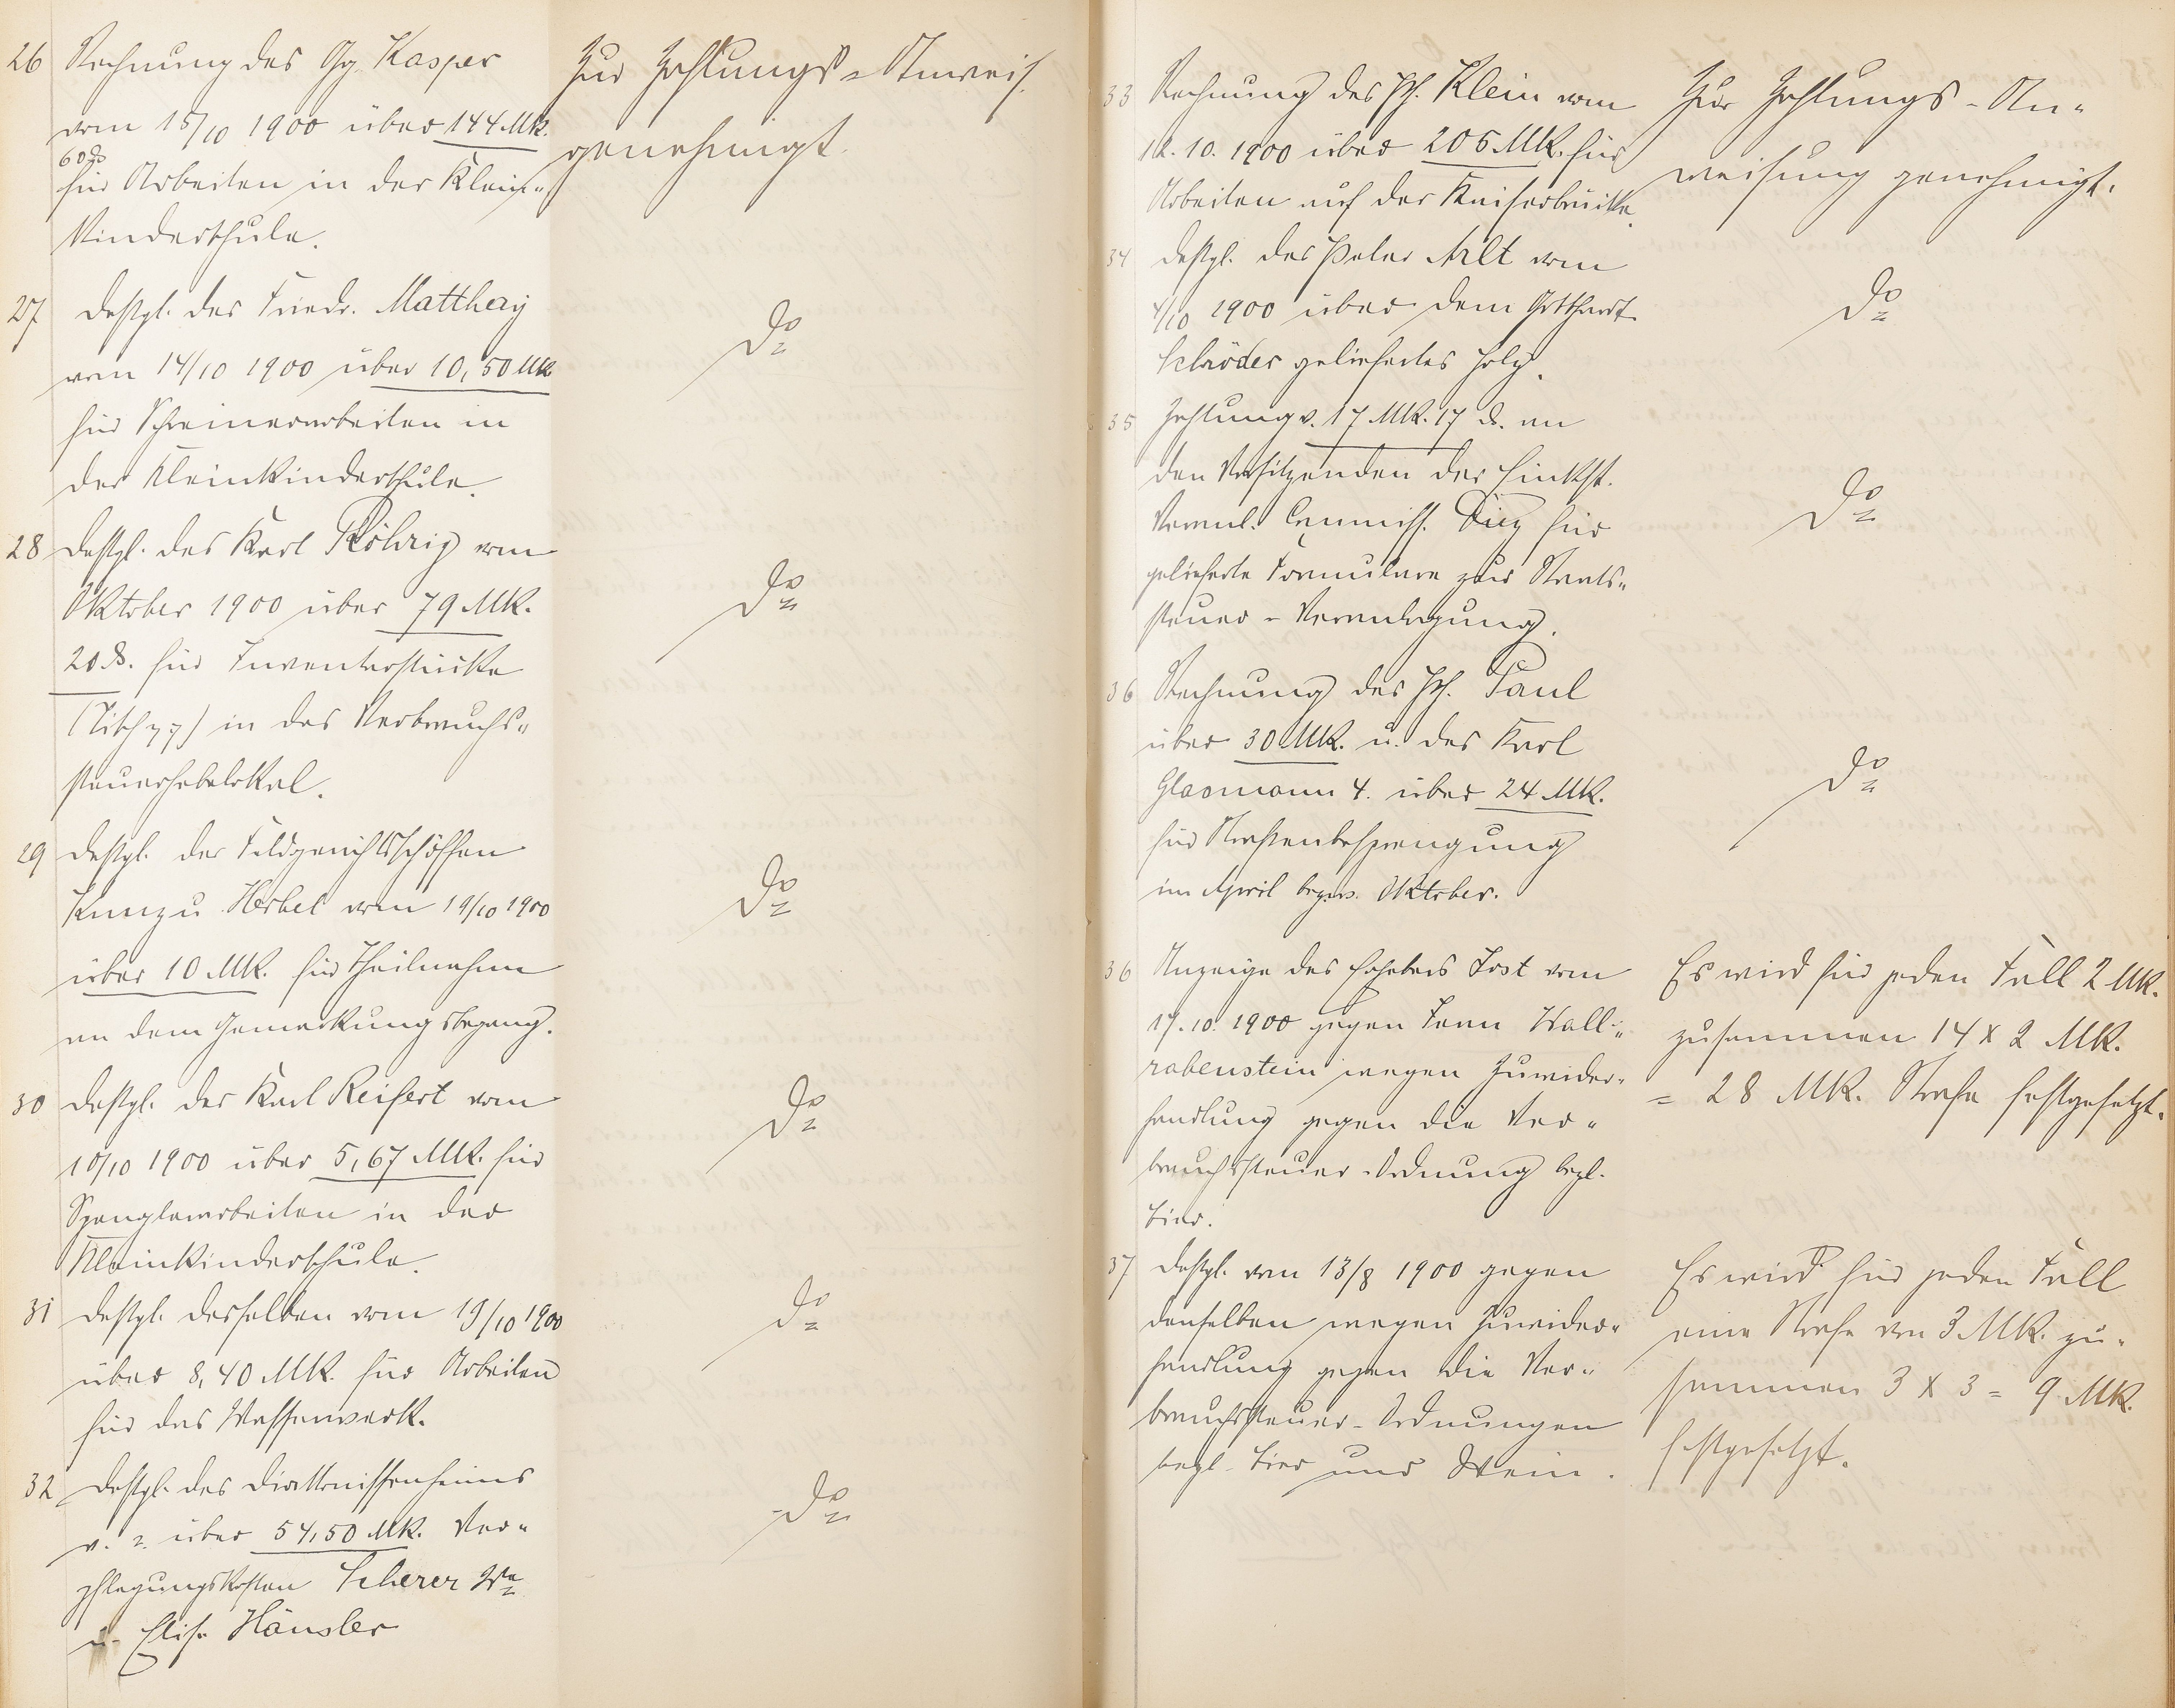 26 Rechnung des Gg. Kasper
vom 15/10 1900 über 144 Mk.
60 ₰
für Arbeiten in der Klein-
Kinderschule.
Zur Zahlungs-Anweis.
genehmigt.
27 Desgl. des Friedr. Matthey
vom 14/10 1900 über 10,50 Mk
für Schreinerarbeiten in
der Kleinkinderschule.
do
28 Desgl. des Karl Röhrig vom
Oktober 1900 über 79 Mk.
20 ₰. für Inventarstücke
(Tisch pp) in das Verbrauchs-
steuerhebelokal.
do
29 Desgl. der Feldgerichtsschöffen
Kunz u. Herbel vom 19/10 1900
über 10 Mk. für Theilnahme
an dem Gemarkungsbegang.
do
30 Desgl. des Karl Reifert vom
10/10 1900 über 5,67 Mk. für
Spenglerarbeiten in der
Kleinkinderschule.
do
31 Desgl. desselben vom 19/10 1900
über 8,40 Mk. für Arbeiten
für das Wasserwerk.
do
32 Desgl. des Diakonissenheims
v. ? über 54,50 Mk. Ver-
pflegungskosten Scherer We
u. Elise Häusler
do
33 Rechnung des Ph. Klein vom
12. 10. 1900 über 205 Mk. für
Arbeiten auf der Kaiserbrücke.
Zur Zahlungs-An-
weisung genehmigt.
34 Desgl. des Peter Arlt vom
4/10 1900 über dem Gotthardt
Schröder geliefertes Holz.
do
35 Zahlung v. 17 Mk. 17 ₰. an
den Vorsitzenden der Einkst.
Veranl. Commiss. Diez für
gelieferte Formulare zur Staats-
steuer-Veranlagung.
do
36 Rechnung des Ph. Paul
über 30 Mk. u. des Karl
Glasmann 4. über 24 Mk.
für Straßenbesprengung
im April bezw. Oktober.
do
36 Anzeige des Erhebers Jost vom
17. 10. 1900 gegen Wall-
rabenstein wegen Zuwider-
handlung gegen die Ver-
brauchssteuer-Ordnung bezl.
Bier.
Es wird für jeden Fall 2 Mk.
zusammen 14 x 2 Mk.
= 28 Mk. Strafe festgesetzt.
37 Desgl. vom 13/8 1900 gegen
denselben wegen Zuwider-
handlung gegen die Ver-
brauchssteuer-Ordnungen
bezl. Bier und Wein.
Es wird für jeden Fall
eine Strafe von 3 Mk. zu-
sammen 3 x 3 = 9 Mk.
festgesetzt.